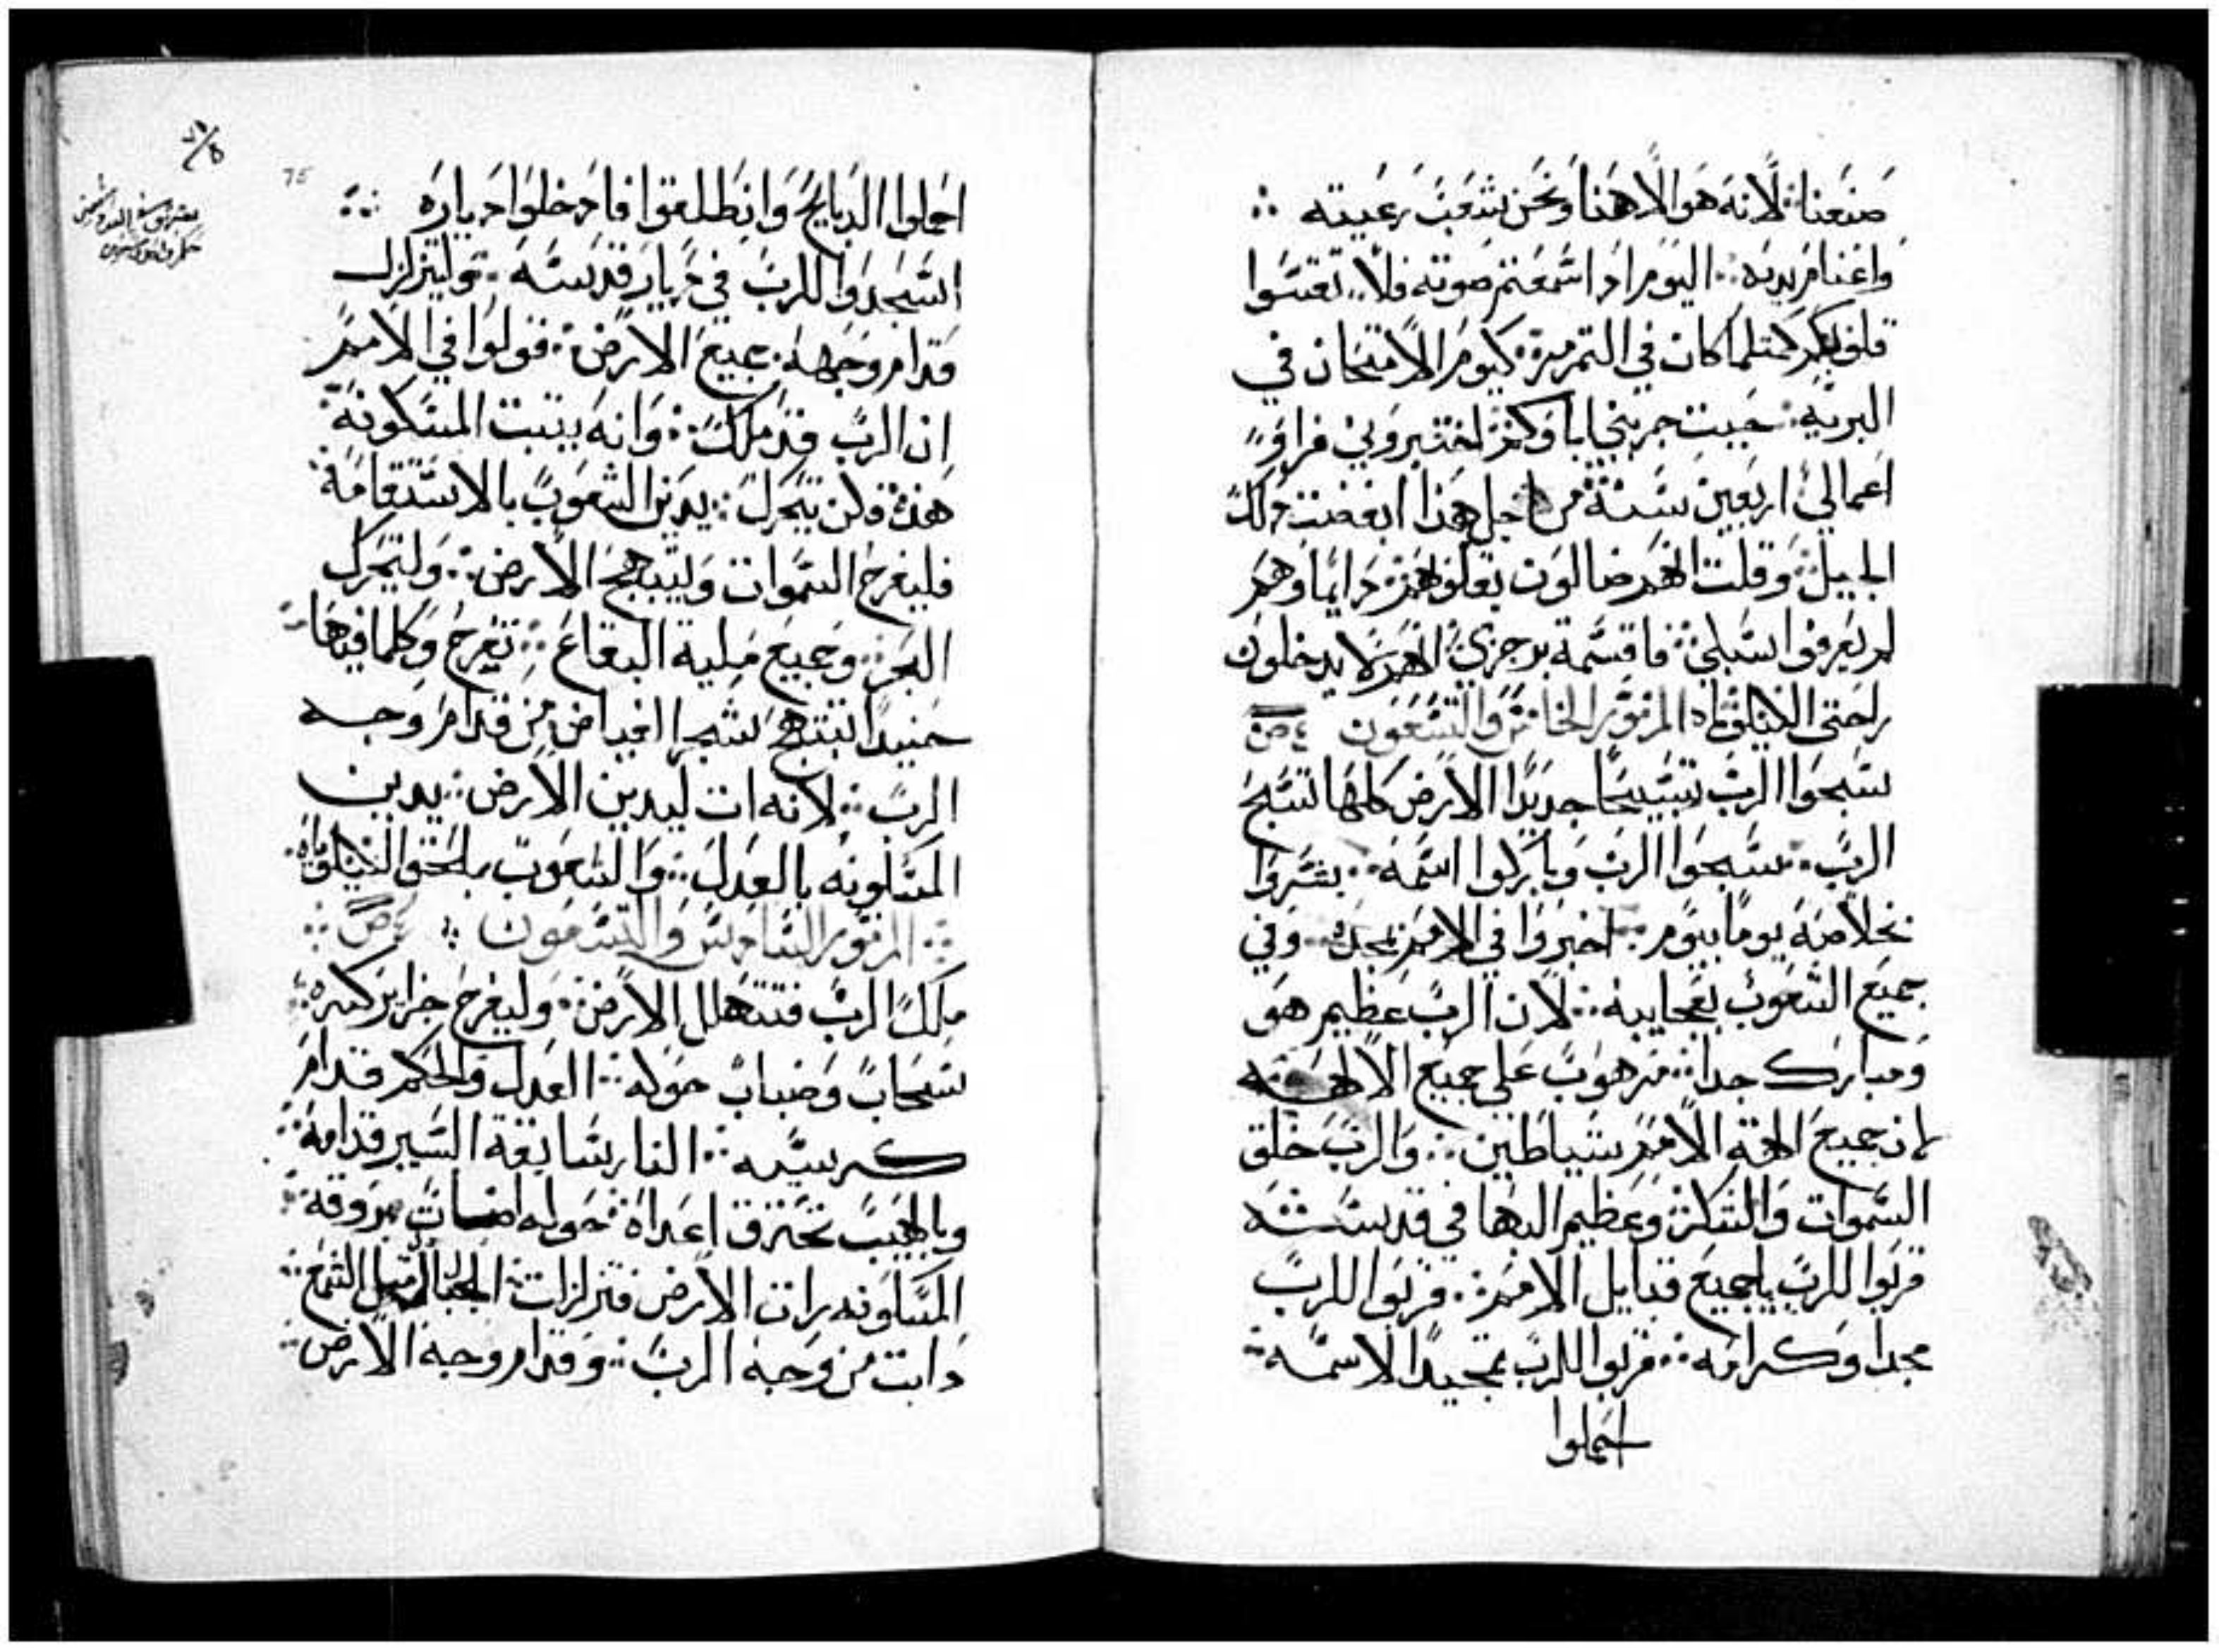 صنعنا لانه هو الاهنا ونحن شعب رعيته
واغنام يديه اليوم اد اسمعتم صوته فلا تقسوا
قلوبكم كمتلما كان في التمرمرة كيوم الامتحان في
البرية حيت جربني اباوكم اختبروني فراو
اعمالي اربعين سنة من اجل هذا ابغضت دلك
الجيل وقلت انهم ضالون بقلوبهم دايما وهم
لم يعرفوا سبلي فاقسمة برجزي انهم لا يدخلون
راحتي الليلوياه المزمور الخامس والتسعون
سبحوا الرب تسبيحا جديدا الارض كلها تسبح
الرب سبحوا الرب وباركوا اسمه بشروا
بخلاصه يوما بيوم اخبروا في الامم بمجده وفي
جميع الشعوب بعجايبه لان الرب عظيم هو
ومبارك جدا مرهوب علي جميع الالهه
لان جميع الهة الامم شياطين والرب خلق
السموات والشكر وعظيم البها في قدسه
قربوا للرب ياجميع قبايل الامم قربوا للرب
مجدا وكرامه قربوا للرب تمجيدا لاسمه
احملوا
75
احملوا الدبايح وانطلقوا فادخلوا دياره
اسجدوا للرب في ديار قدسه وليتزلزل
قدام وجهه جميع الارض قولوا في الامم
ان الرب قد ملك وانه يتبت المسكونة
هذه فلن تتحرك يدين الشعوب بالاستقامة
فليفرح السموات وليبتهج الارض وليتحرك
البحر وجميع مليه البقاع تفرح وكلما فيها
حنيدا تبتهج شجر الغياض من قدام وجه
الرب لانه ات ليدين الارض يدين
المسكونه بالعدل والشعوب بالحق الليلوياه
المزمور السادس والتسعون
ملك الرب فتتهلل الارض وليفرح جزاير كتيره
سحاب وضباب حوله العدل والحكم قدام
كرسيه النار سابقة السير قدامه
وبالهيب تحترق اعداه حوله اضات بروقه
المسكونه رات الارض فتزلزلت الجبال متل الشمع
دابت من وجه الرب وقدام وجه الارض